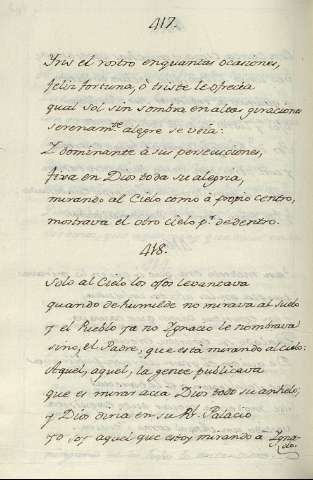 417.
Iris el rostro en quantas ocasiones,
feliz fortuna, ò triste le ofrecia
qual sol sin sombra en altas giraciones
serenam.te alegre se veia:
I dominante à sus persecuciones,
fixa en Dios toda su alegria,
mirando al Cielo como à propio centro,
mostrava el otro cielo p.r de dentro.
418.
Solo al Cielo los ojos levantava
quando de humilde no mirava al suelo
y el Pueblo ya no Ignacio le nombrava
sino, el Padre, que està mirando al cielo:
Aquel, aquel, la gente publicava
que es mirar acia Dios todo su anhelo;
y Dios diria en su Rl. Palacio
yo, soy aquel que estoy mirando a Igna-
cio.